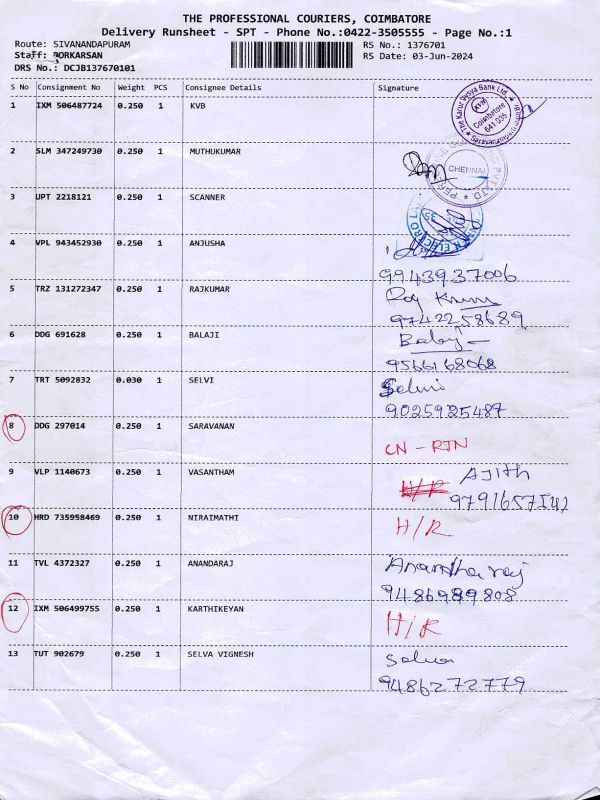 THE PROFESSIONAL COURIERS, COIMBATORE
Delivery Runsheet - SPT - Phone No.:0422-3505555 - Page No.:1
Route: SIVANANDAPURAM RS No.: 1376701
Staff: PORKARSAN RS Date: 03-Jun-2024
DRS No.: DCJB137670101
S No Consignment No Weight PCS Consignee Details Signature
1 IXM 506487724 0.250 1 KVB
The Karur Vysya Bank Ltd. KVB Coimbatore 641 035
2 SLM 347249730 0.250 1 MUTHUKUMAR
CHENNAI
3 UPT 2218121 0.250 1 SCANNER
4 VPL 943452930 0.250 1 ANJUSHA
9943937006
5 TRZ 131272347 0.250 1 RAJKUMAR Raj
9742258689
6 DDG 691628 0.250 1 BALAJI Balaji
9566168068
7 TRT 5092832 0.030 1 SELVI Selvi
9025925487
8 DDG 297014 0.250 1 SARAVANAN CN - RTN
9 VLP 1140673 0.250 1 VASANTHAM H/R Ajith
10 HRD 735958469 0.250 1 NIRAIMATHI H/R
11 TVL 4372327 0.250 1 ANANDARAJ Anandha raj
9486989808
12 IXM 506499755 0.250 1 KARTHIKEYAN H/R
13 TUT 902679 0.250 1 SELVA VIGNESH Selva
9486272779